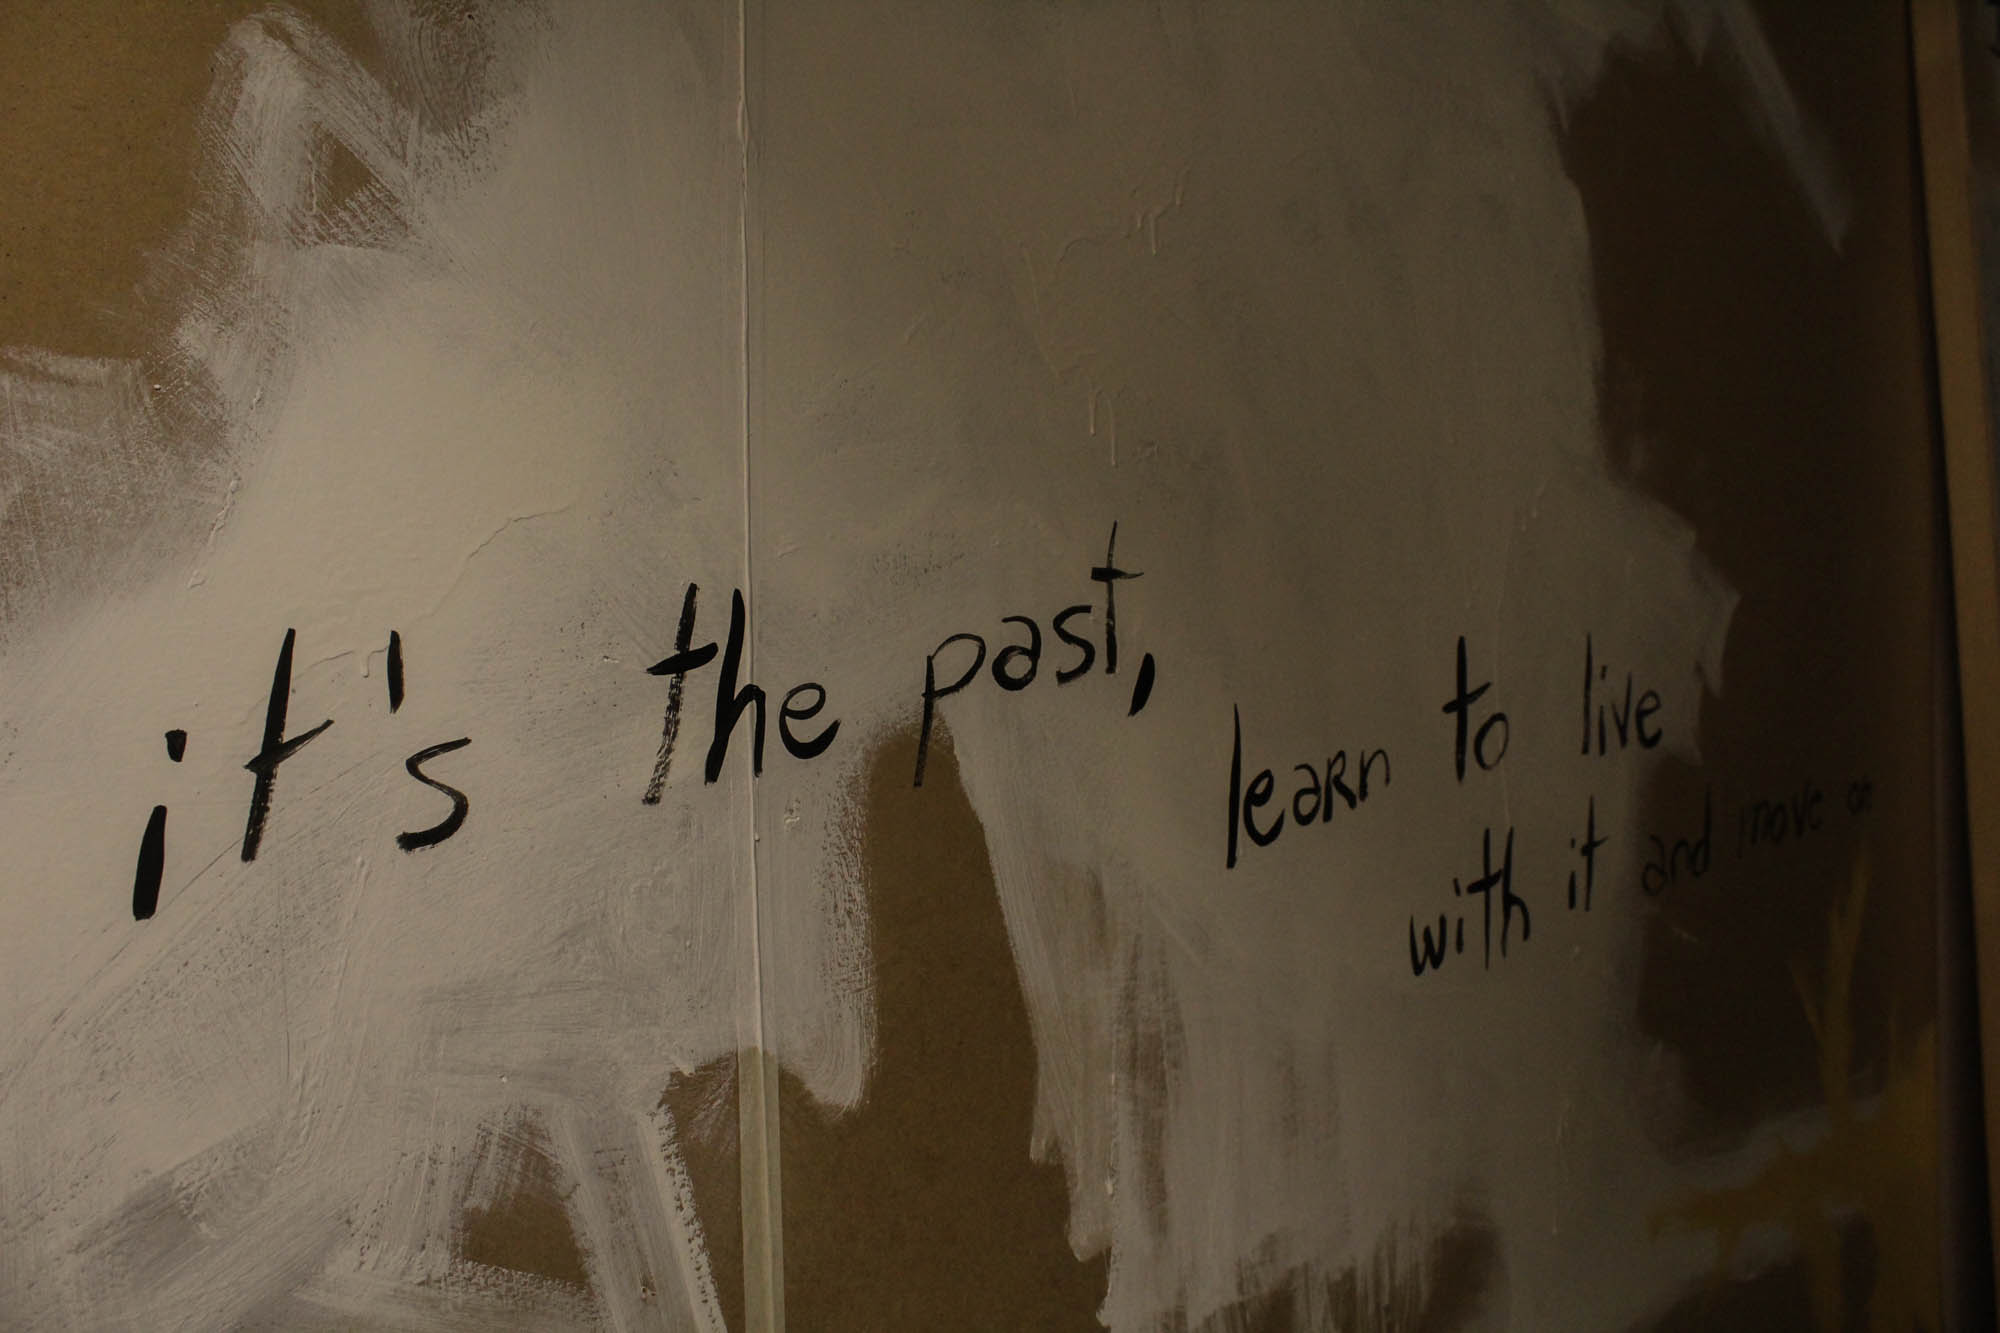 it's the past, learn to live
with it and move on